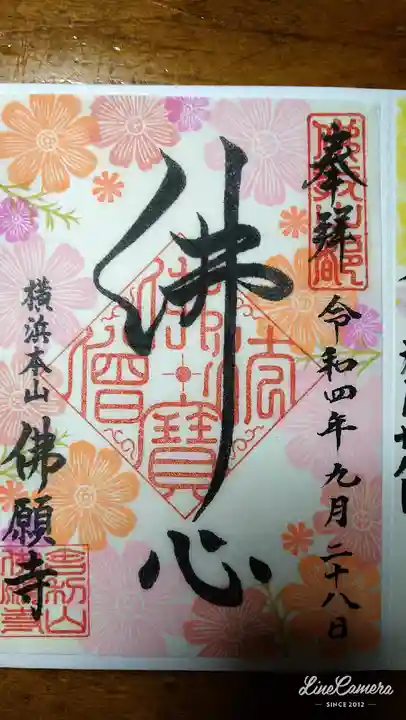 奉拝
令和四年九月二十八日
佛心
横浜本山
佛願寺
LineCamera
SINCE 2012